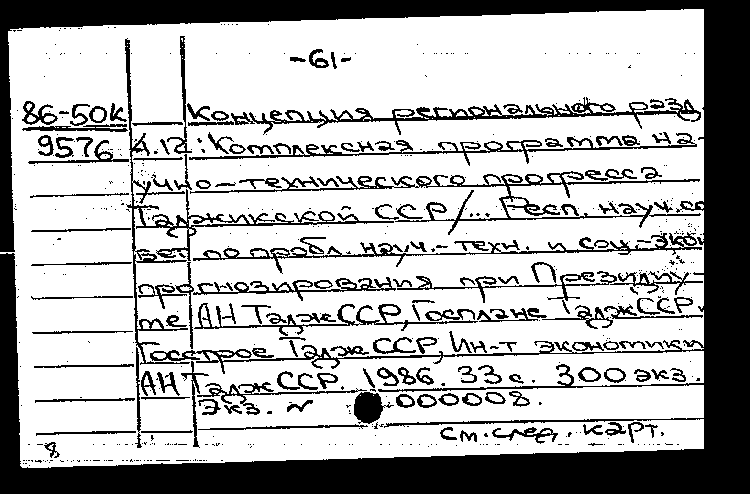 -61-
86-50к Концепция регионального разд.
9576 4.12: Комплексная программа на-
учно-технического прогресса
Таджикской ССР/... Респ. науч. со
вет по пробл. науч.-техн. и соц.-экон
прогнозирования при Президиу-
ме АН ТаджССР, Госплане ТаджССР
Госстрое ТаджССР, Ин-т экономики
АН ТаджССР. 1986. 33 с. 300 экз.
Экз. ~ 000008.
см. след. карт.
8